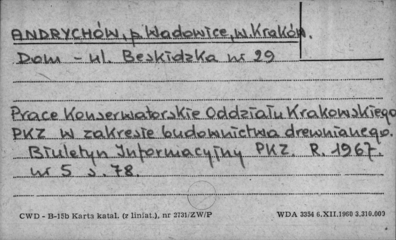 ANDRYCHÓW, p. Wadowice, w. Kraków.
Dom - ul. Beskidzka nr 29
Prace Konserwatorskie Oddziału Krakowskiego
PKZ w zakresie budownictwa drewnianego.
Biuletyn Informacyjny PKZ. R. 1967.
nr 5 s. 78.
CWD - B-15b Karta katal. (z liniat.), nr 2731/ZW/P WDA 3354 6.XII.1960 3.216.000